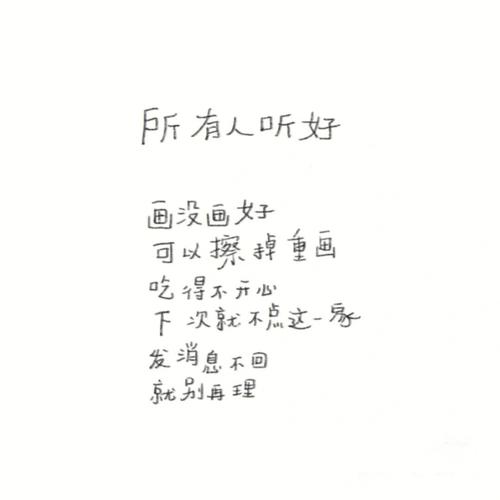 所有人听好
画没画好
可以擦掉重画
吃得不开心
下次就不点这一家
发消息不回
就别再理